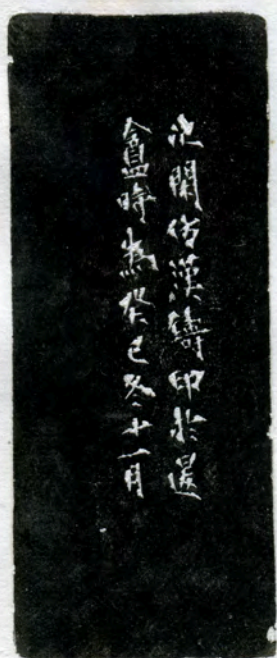 閑仿漢鑄印於
盦時為癸巳冬十一月